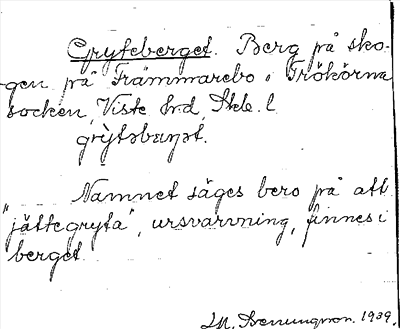 Gryteberget. Berg på sko-
gen på Främmarebo i Trökörna
socken, Viste hd,
grỳtəbæɲət.
Namnet säges bero på att
"jättegryta", ursvarvning, finnes i
berget
1939.